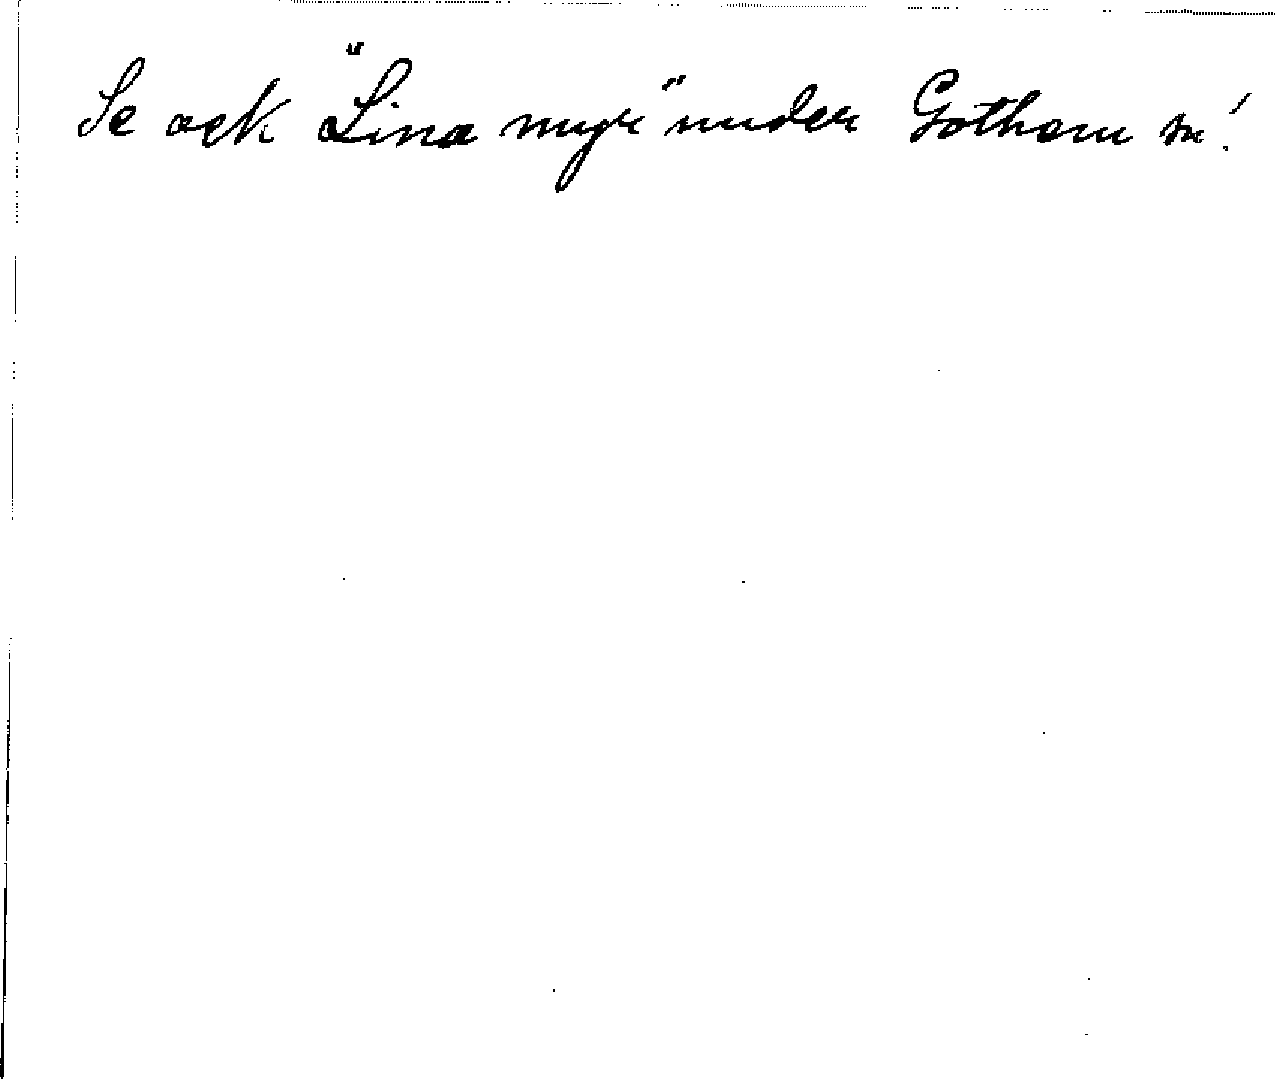 Se ock "Lina myr" under Gothem sn!